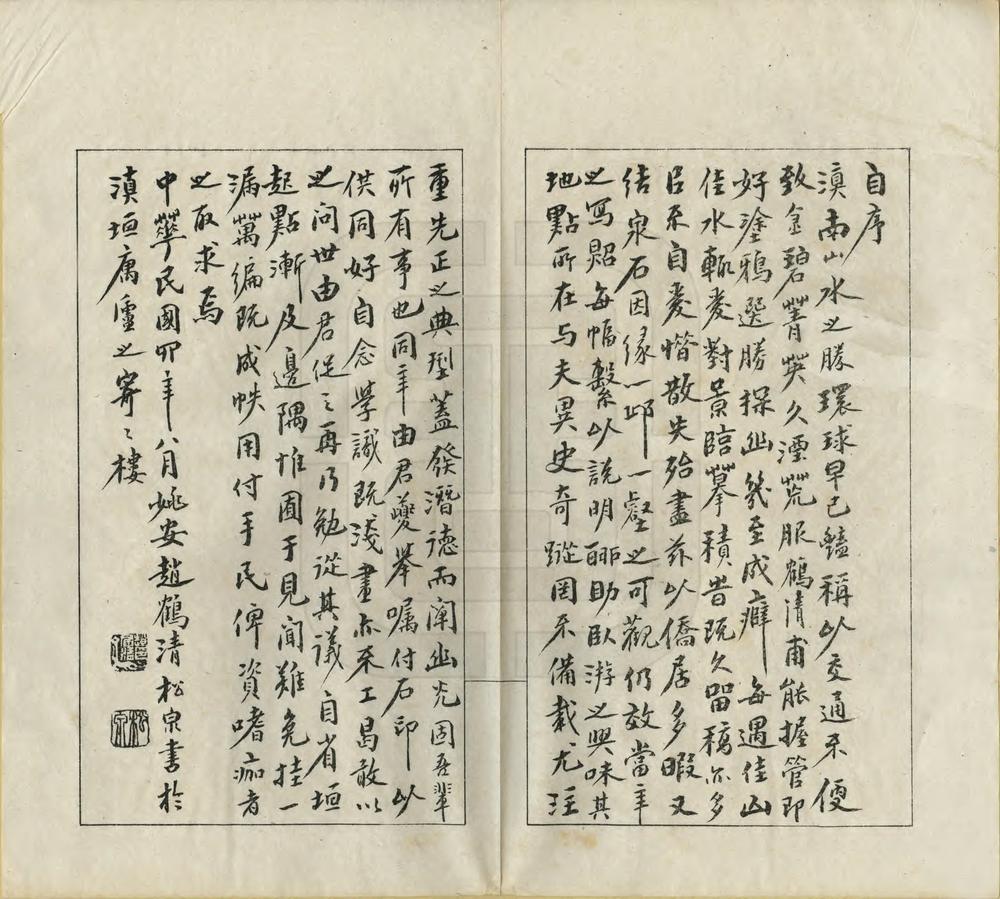 自序
滇南山水之勝環球早已豔稱以交通不便
致金碧菁英久湮荒服鶴清甫能握管即
好塗鴉選勝探幽幾至成癖每遇佳山
佳水輒發對景臨摹積昔既久留稿亦多
吕不自愛惜散失殆盡茲以僑居多暇又
结泉石因緣一邱一壑之可觀仍效當年
之寫照每幅繫以說明聊助臥游之興味其
地點所在与夫異史奇蹤罔不備載尤注
重先正之典型蓋發潛德而闡幽光固吾輩
所有事也同年由君夔舉嘱付石印以
供同好自念學識既淺畫亦不工曷敢以
之问世由君促之再乃勉從其議自省垣
起點漸及邊隅惟囿于見聞難免挂一
漏萬編既成帙用付手民俾資嗜痂者
之取求焉
中華民國四年八月姚安趙鶴清松泉書於
滇垣廡廬之寄寄樓